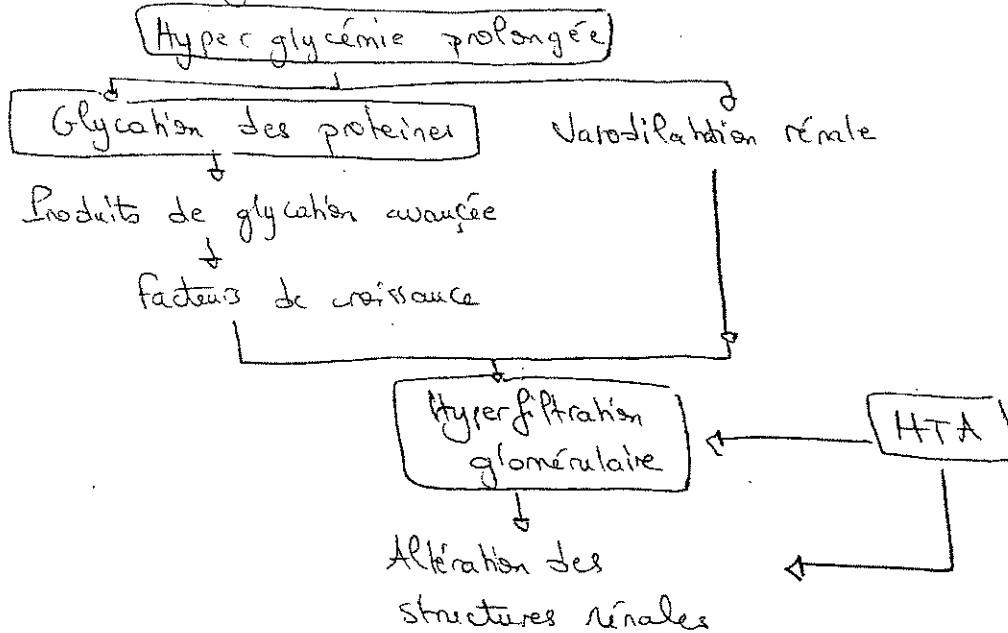 Hyperglycémie prolongée
Glycation des protéines
Vasodilatation rénale
Produits de glycation avancée
facteurs de croissance
Hyperfiltration
glomérulaire
HTA
Altération des
structures rénales